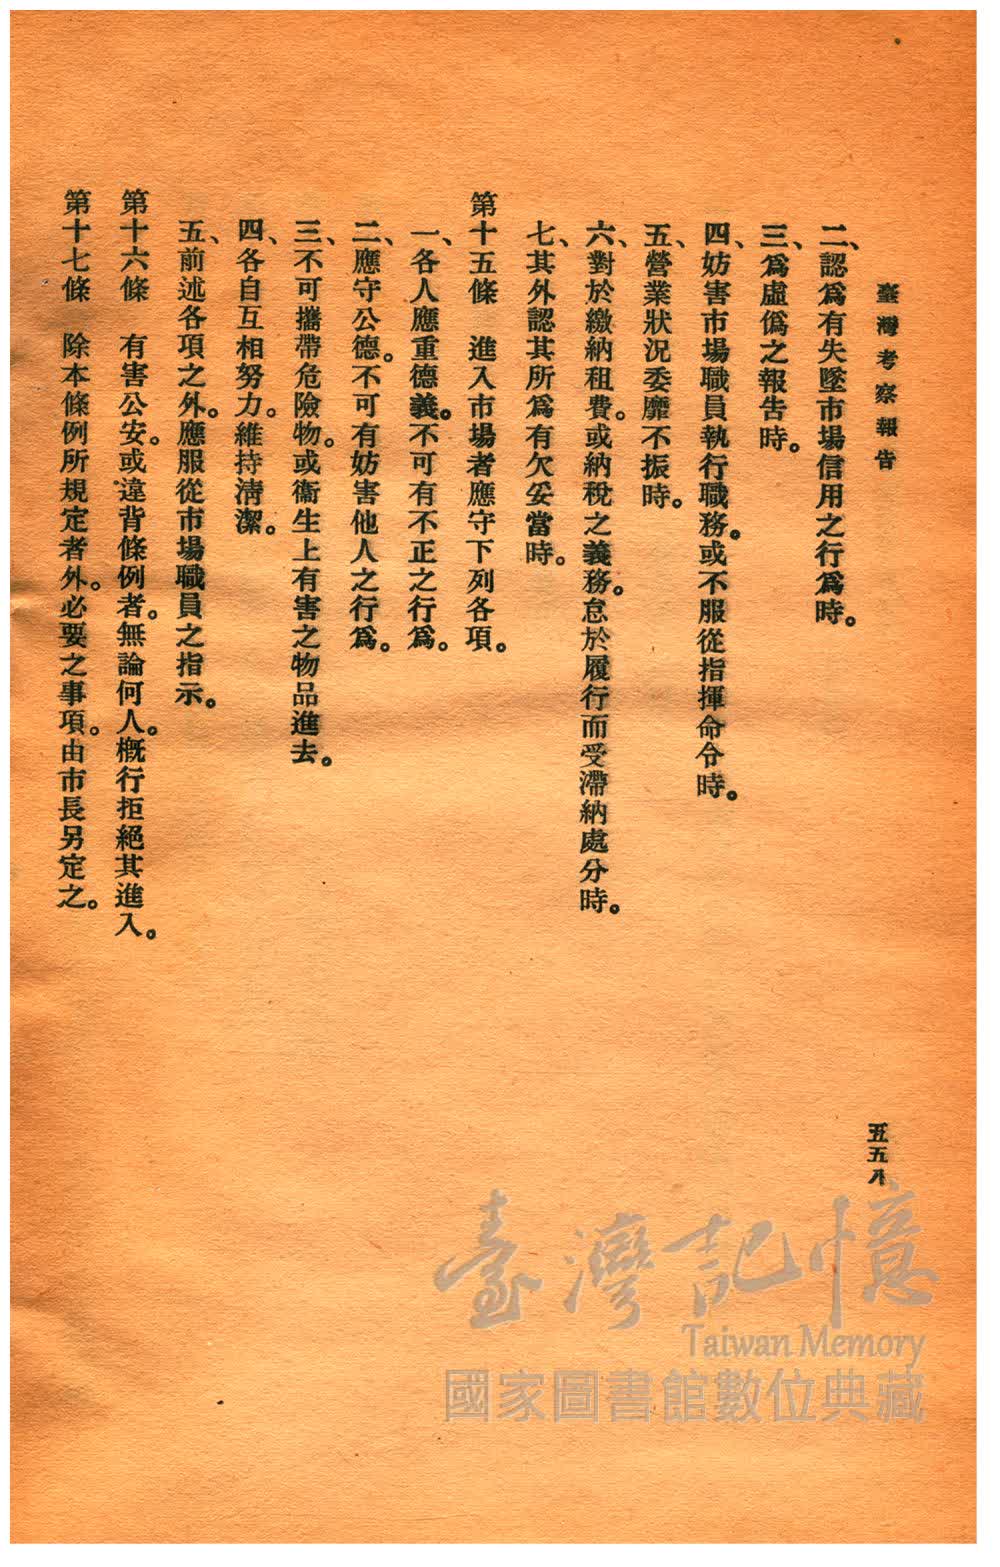 臺灣考察報告
二、認爲有失墜市場信用之行爲時。
三、爲虛僞之報告時。
四、妨害市場職員執行職務。或不服從指揮命令時。
五、營業狀況委靡不振時。
六、對於繳納租費。或納稅之義務。怠於履行而受滯納處分時。
七、其外認其所爲有欠妥當時。
第十五條　進入市場者應守下列各項。
一、各人應重德義。不可有不正之行爲。
二、應守公德。不可有妨害他人之行爲。
三、不可攜帶危險物。或衞生上有害之物品進去。
四、各自互相努力。維持淸潔。
五、前述各項之外。應服從市場職員之指示。
第十六條　有害公安。或違背條例者。無論何人。槪行拒絕其進入。
第十七條　除本條例所規定者外。必要之事項。由市長另定之。
五五八
臺灣記憶
Taiwan Memory
國家圖書館數位典藏